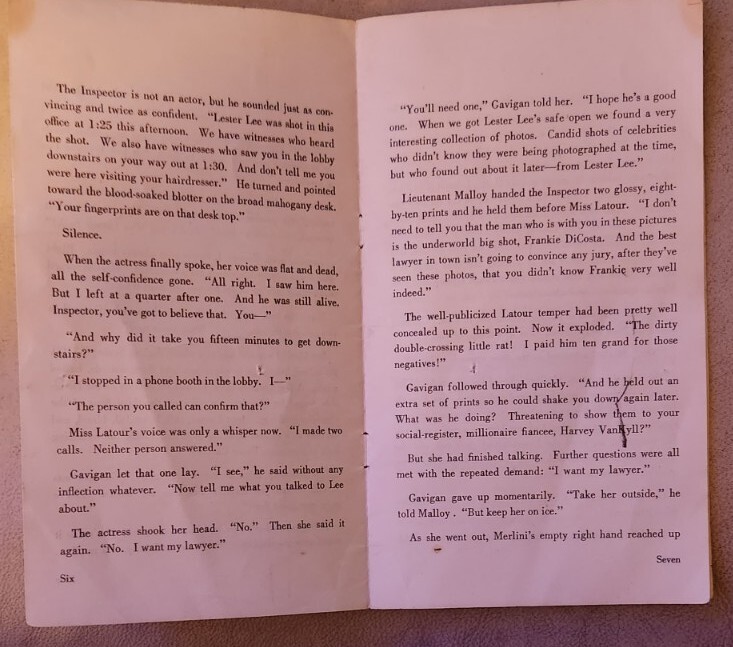 The Inspector is not an actor, but he sounded just as con-
vincing and twice as confident. "Lester Lee was shot in this
office at 1:25 this afternoon. We have witnesses who heard
the shot. We also have witnesses who saw you in the lobby
downstairs on your way out at 1:30. And don't tell me you
were here visiting your hairdresser." He turned and pointed
toward the blood-soaked blotter on the broad mahogany desk.
"Your fingerprints are on that desk top."
Silence.
When the actress finally spoke, her voice was flat and dead,
all the self-confidence gone. "All right. I saw him here.
But I left at a quarter after one. And he was still alive.
Inspector, you've got to believe that. You—"
"And why did it take you fifteen minutes to get down-
stairs?"
"I stopped in a phone booth in the lobby. I—"
"The person you called can confirm that?"
Miss Latour's voice was only a whisper now. "I made two
calls. Neither person answered."
Gavigan let that one lay. "I see," he said without any
inflection whatever. "Now tell me what you talked to Lee
about."
The actress shook her head. "No." Then she said it
again. "No. I want my lawyer."
Six
"You'll need one," Gavigan told her. "I hope he's a good
one. When we got Lester Lee's safe open we found a very
interesting collection of photos. Candid shots of celebrities
who didn't know they were being photographed at the time,
but who found out about it later—from Lester Lee."
Lieutenant Malloy handed the Inspector two glossy, eight-
by-ten prints and he held them before Miss Latour. "I don't
need to tell you that the man who is with you in these pictures
is the underworld big shot, Frankie DiCosta. And the best
lawyer in town isn't going to convince any jury, after they've
seen these photos, that you didn't know Frankie very well
indeed."
The well-publicized Latour temper had been pretty well
concealed up to this point. Now it exploded. "The dirty
double-crossing little rat! I paid him ten grand for those
negatives!"
Gavigan followed through quickly. "And he held out an
extra set of prints so he could shake you down again later.
What was he doing? Threatening to show them to your
social-register, millionaire fiancee, Harvey VanKyll?"
But she had finished talking. Further questions were all
met with the repeated demand: "I want my lawyer."
Gavigan gave up momentarily. "Take her outside," he
told Malloy. "But keep her on ice."
As she went out, Merlini's empty right hand reached up
Seven